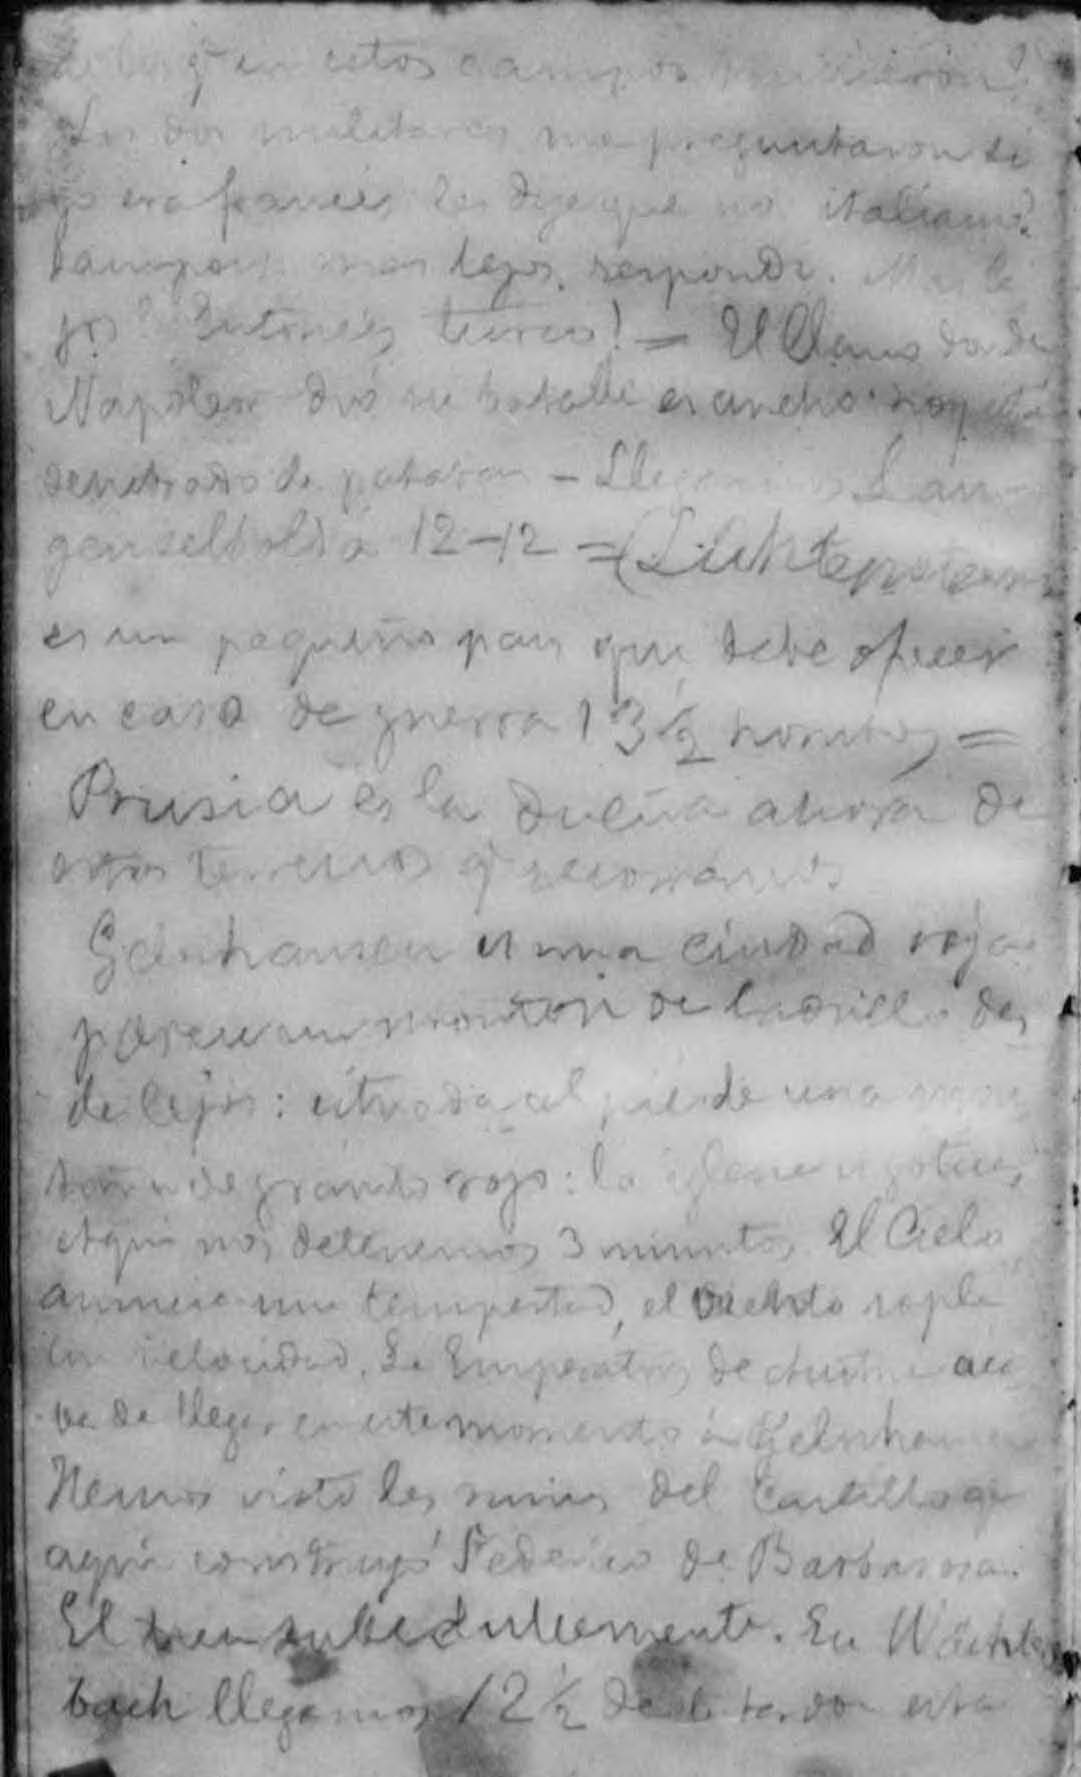 de los q̃ en estos campos murieron?
Los dos militares me preguntaron si
yo era francés, les dije que no. italiano?
tampoco, mas lejos, respondi. Mas le
jos? Entonces turco! = El llano donde
Napoleon dió su batalla es ancho: hoy está
de patatas - Llegamos á Lan-
genselbold á 12-12 = (Lichtenstein
es un pequeño pais que debe ofrecer
en caso de guerra 13 ½ hombres =
Prusia es la dueña ahora de
estos terrenos q̃ recorramos
Gelnhausen es una ciudad roja
parece un monton de ladrillos des
de lejos: situada al pie de una mon
taña de granito rojo: la iglesia es gotica,
Aquí nos detenemos 3 minutos. El Cielo
anuncia una tempestad, el viento sopla
con velocidad. La Emperatriz de Austria aca
ba de llegar en este momento á Gelnhausen
Hemos visto las ruinas del Castillo q̃
aqui construyó Federico de Barbarosa.
El tren sube dulcemente. En Wächters
bach llegamos 12 ½ de la tarde esta